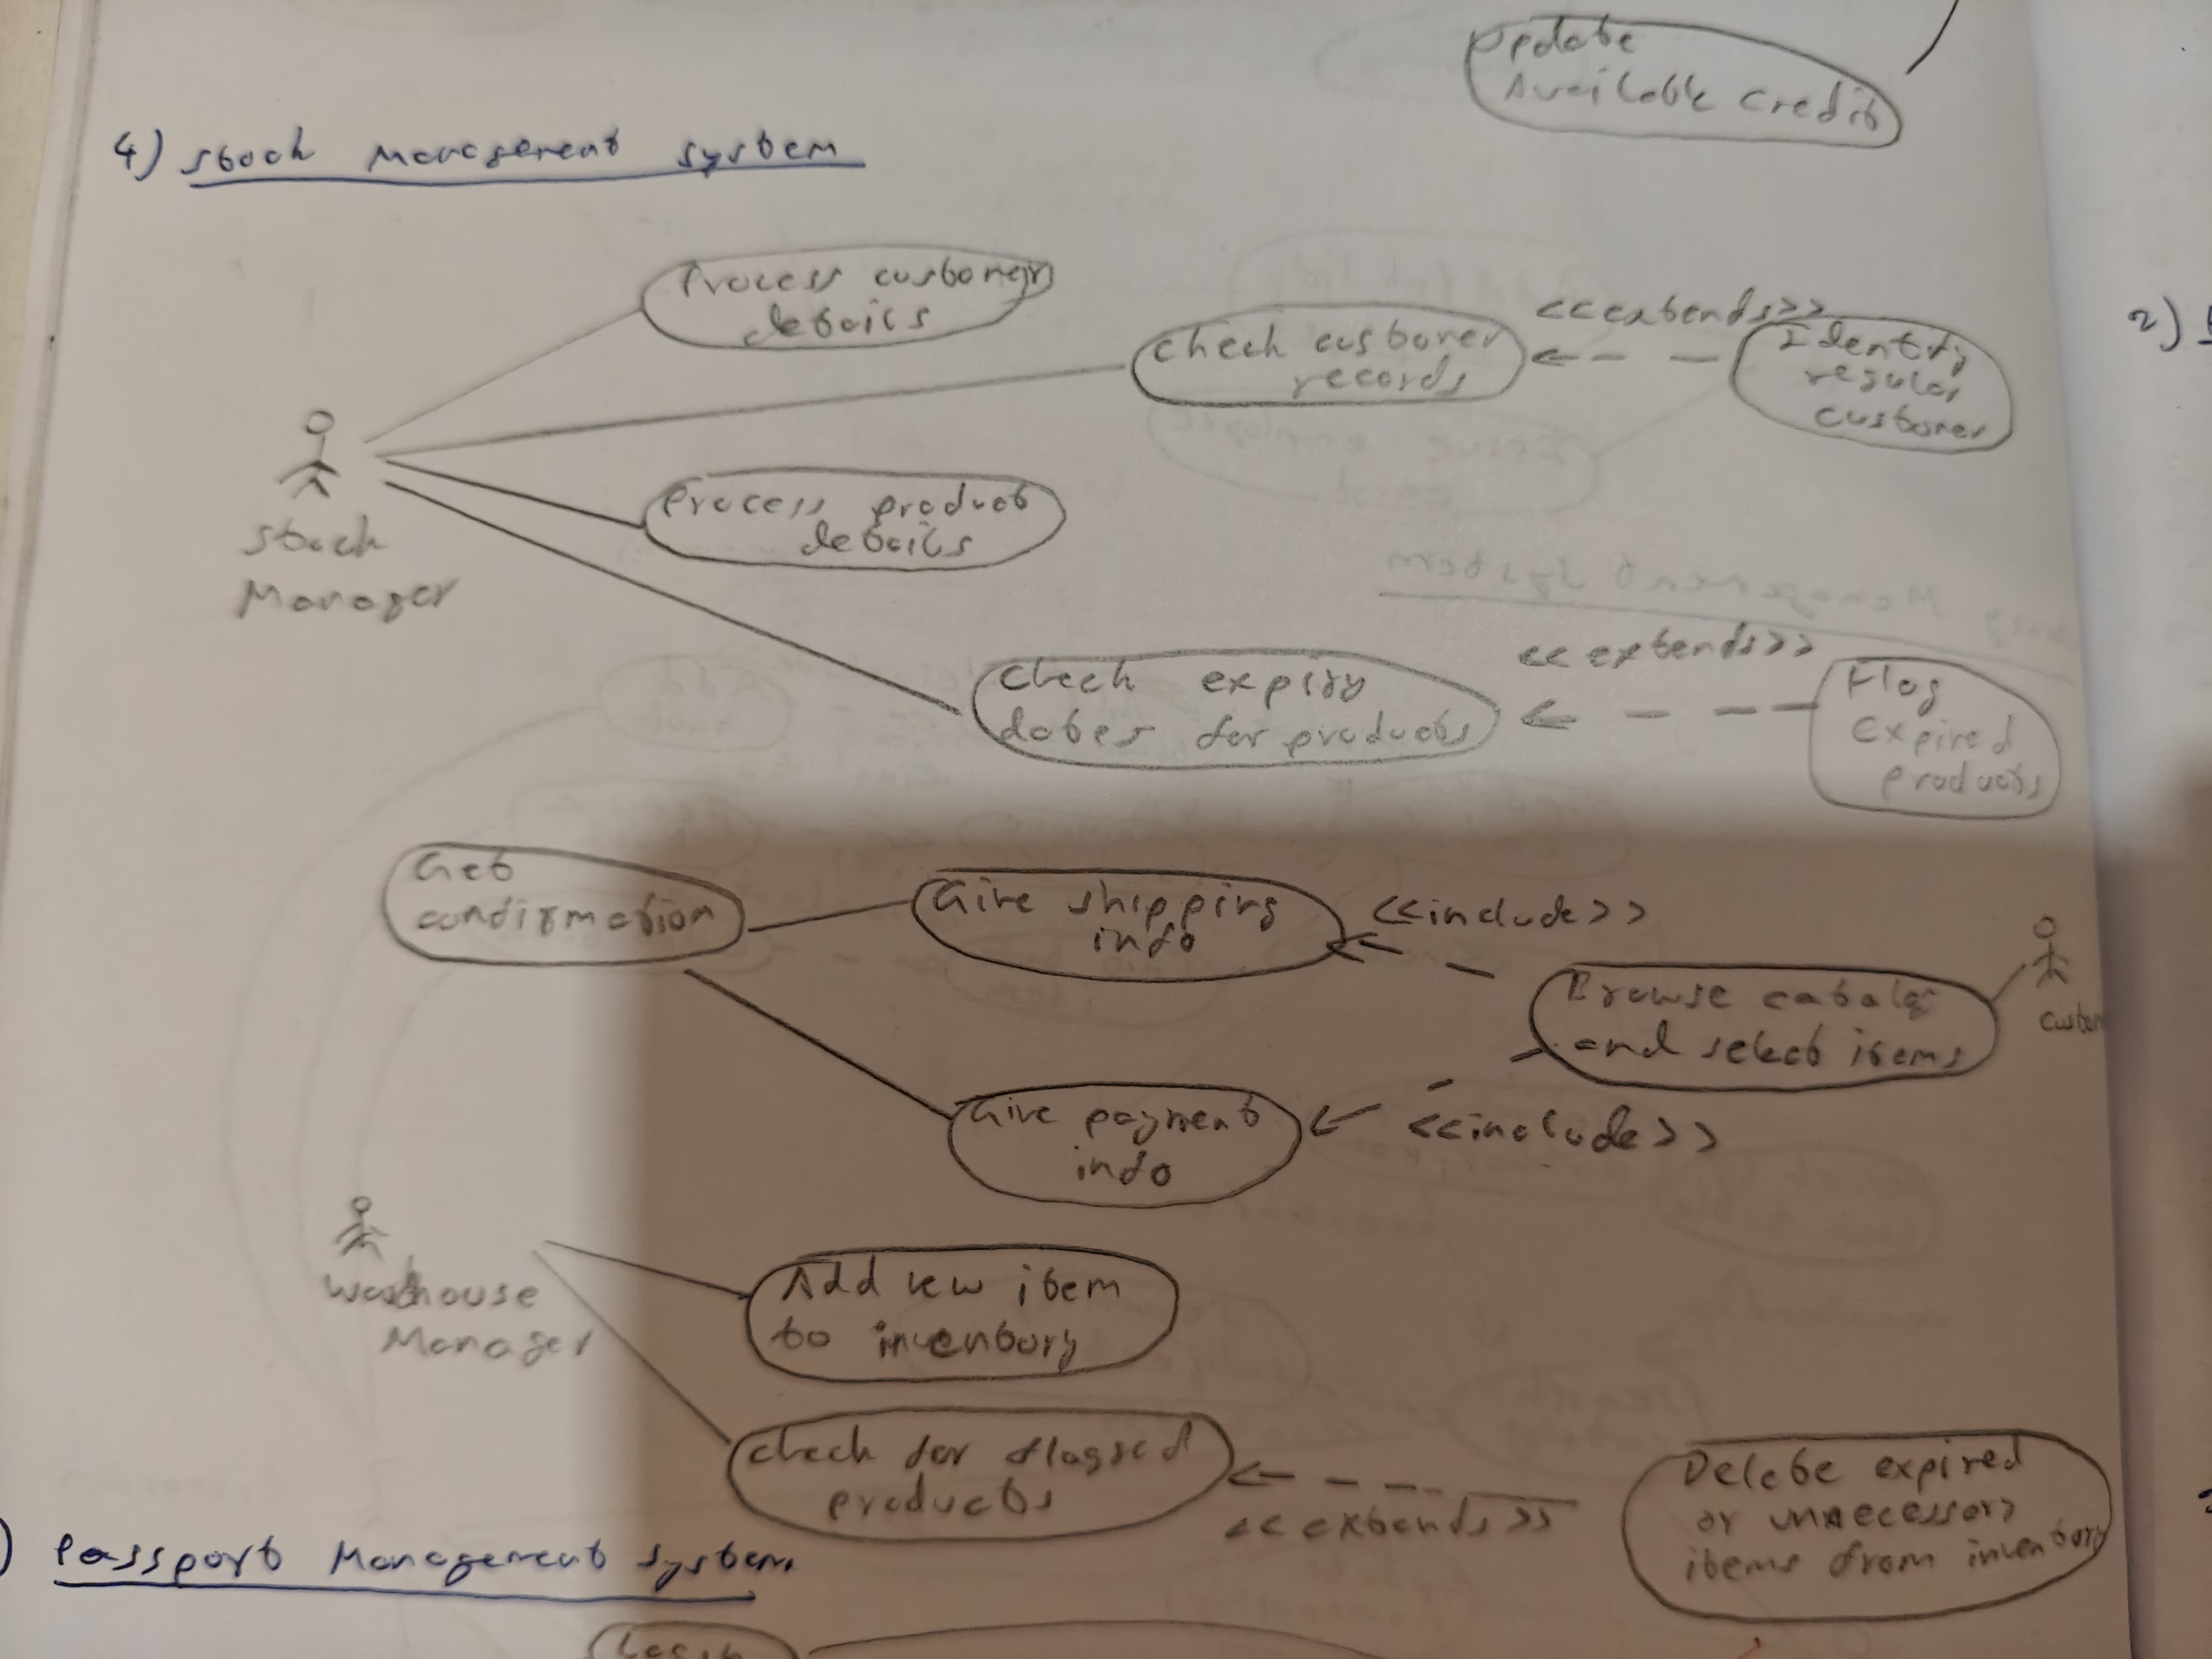 Update
Available Credit
4) Stock Management System
Process customer
details
<<extends>>
Check customer
records
Identify
regular
customer
2)
Stock
Manager
Process product
details
<<extends>>
Check expiry
dates for products
Flag
Expired
products
Get
confirmation
Give shipping
info
<<include>>
Browse catalog
and select items
Custom
Give payment
info
<<include>>
Warehouse
Manager
Add new item
to inventory
Check for flagged
products
<<extends>>
Delete expired
or unnecessary
items from inventory
) Passport Management System.
Login